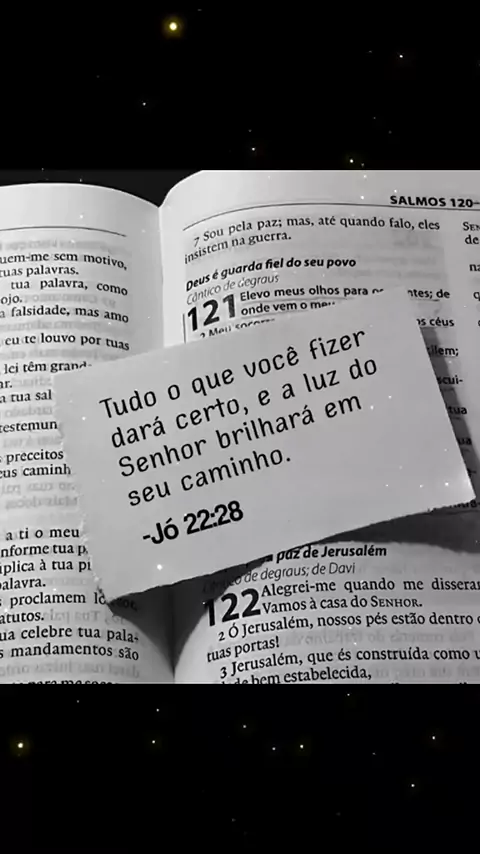 SALMOS 120-
7 Sou pela paz; mas, até quando falo, eles
insistem na guerra.
Deus é guarda fiel do seu povo
Cântico de degraus
121 Elevo meus olhos para
onde vem o
tes; de
os céus
uem-me sem motivo,
tuas palavras.
tua palavra, como
ojo.
a falsidade, mas amo
eu te louvo por tuas
lei têm grand
a tua sal
testemun
preceitos
eus caminh
Tudo o que você fizer
dará certo, e a luz do
Senhor brilhará em
seu caminho.
-Jó 22:28
a ti o meu
nforme tua p
úplica à tua pi
palavra.
proclamem lo
atutos.
ua celebre tua pala-
s mandamentos são
paz de Jerusalém
de degraus; de Davi
122 Alegrei-me quando me disseram
Vamos à casa do SENHOR.
2 Ó Jerusalém, nossos pés estão dentro
tuas portas!
3 Jerusalém, que és construída como u
bem estabelecida,